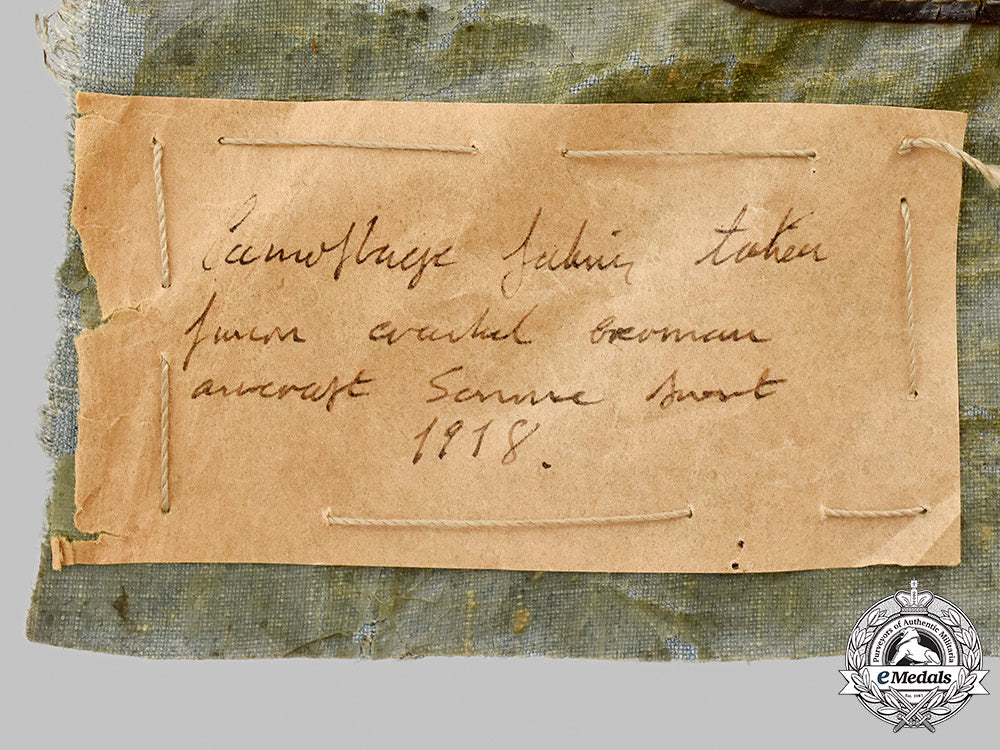 Camoflage fabric taken
from crashed German
aircraft Somme front
1918.
Purveyors of Authentic Militaria
eMedals